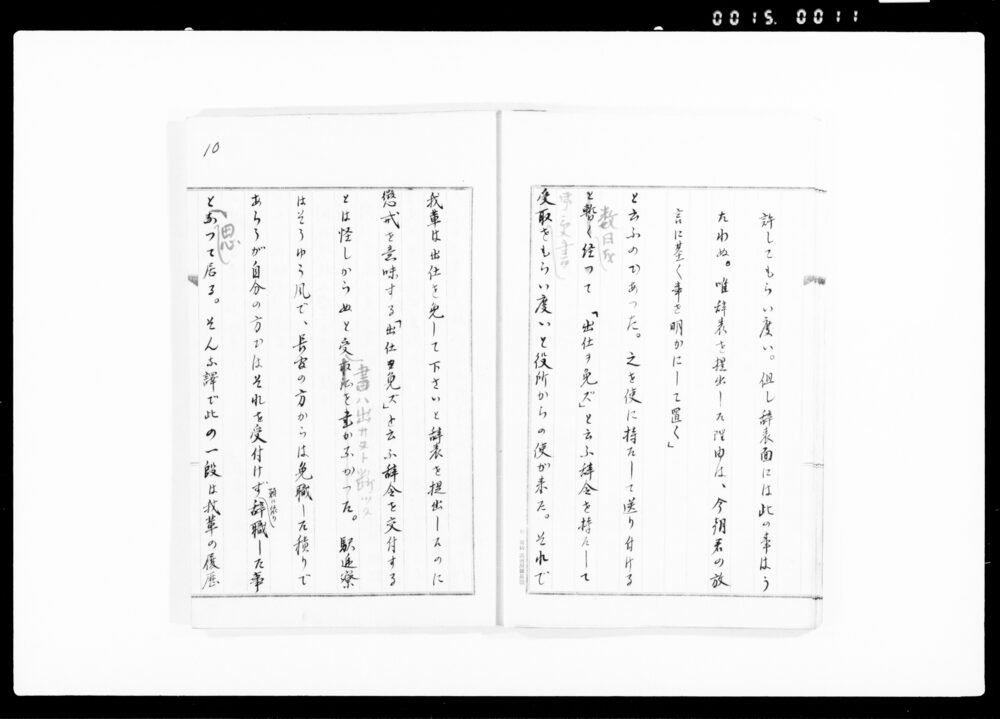 0015. 0011
許してもらい度い。但し辞表面には此の事はう
たわぬ。唯辞表を提出した理由は、今朝君の放
言に基く事を明かにして置く」
と云ふのであった。之を使に持たして送り付ける
数日を
と暫く経って「出仕ヲ免ズ」と云ふ辞令を持たして
受書
受取をもらい度いと役所からの使が来た。それで
10
我輩は出仕を免して下さいと辞表を提出したのに
懲戒を意味する「出仕ヲ免ズ」と云ふ辞令を交付する
書ハ出サヌト断ツタ
とは怪しからぬと受取を書かなかった。駅逓寮
はそうゆう風で、長官の方からは免職した積りで
あらうが自分の方ではそれを受付けず辞職した事
願に依り
思
となって居る。そんな譯で此の一段は我輩の履歴